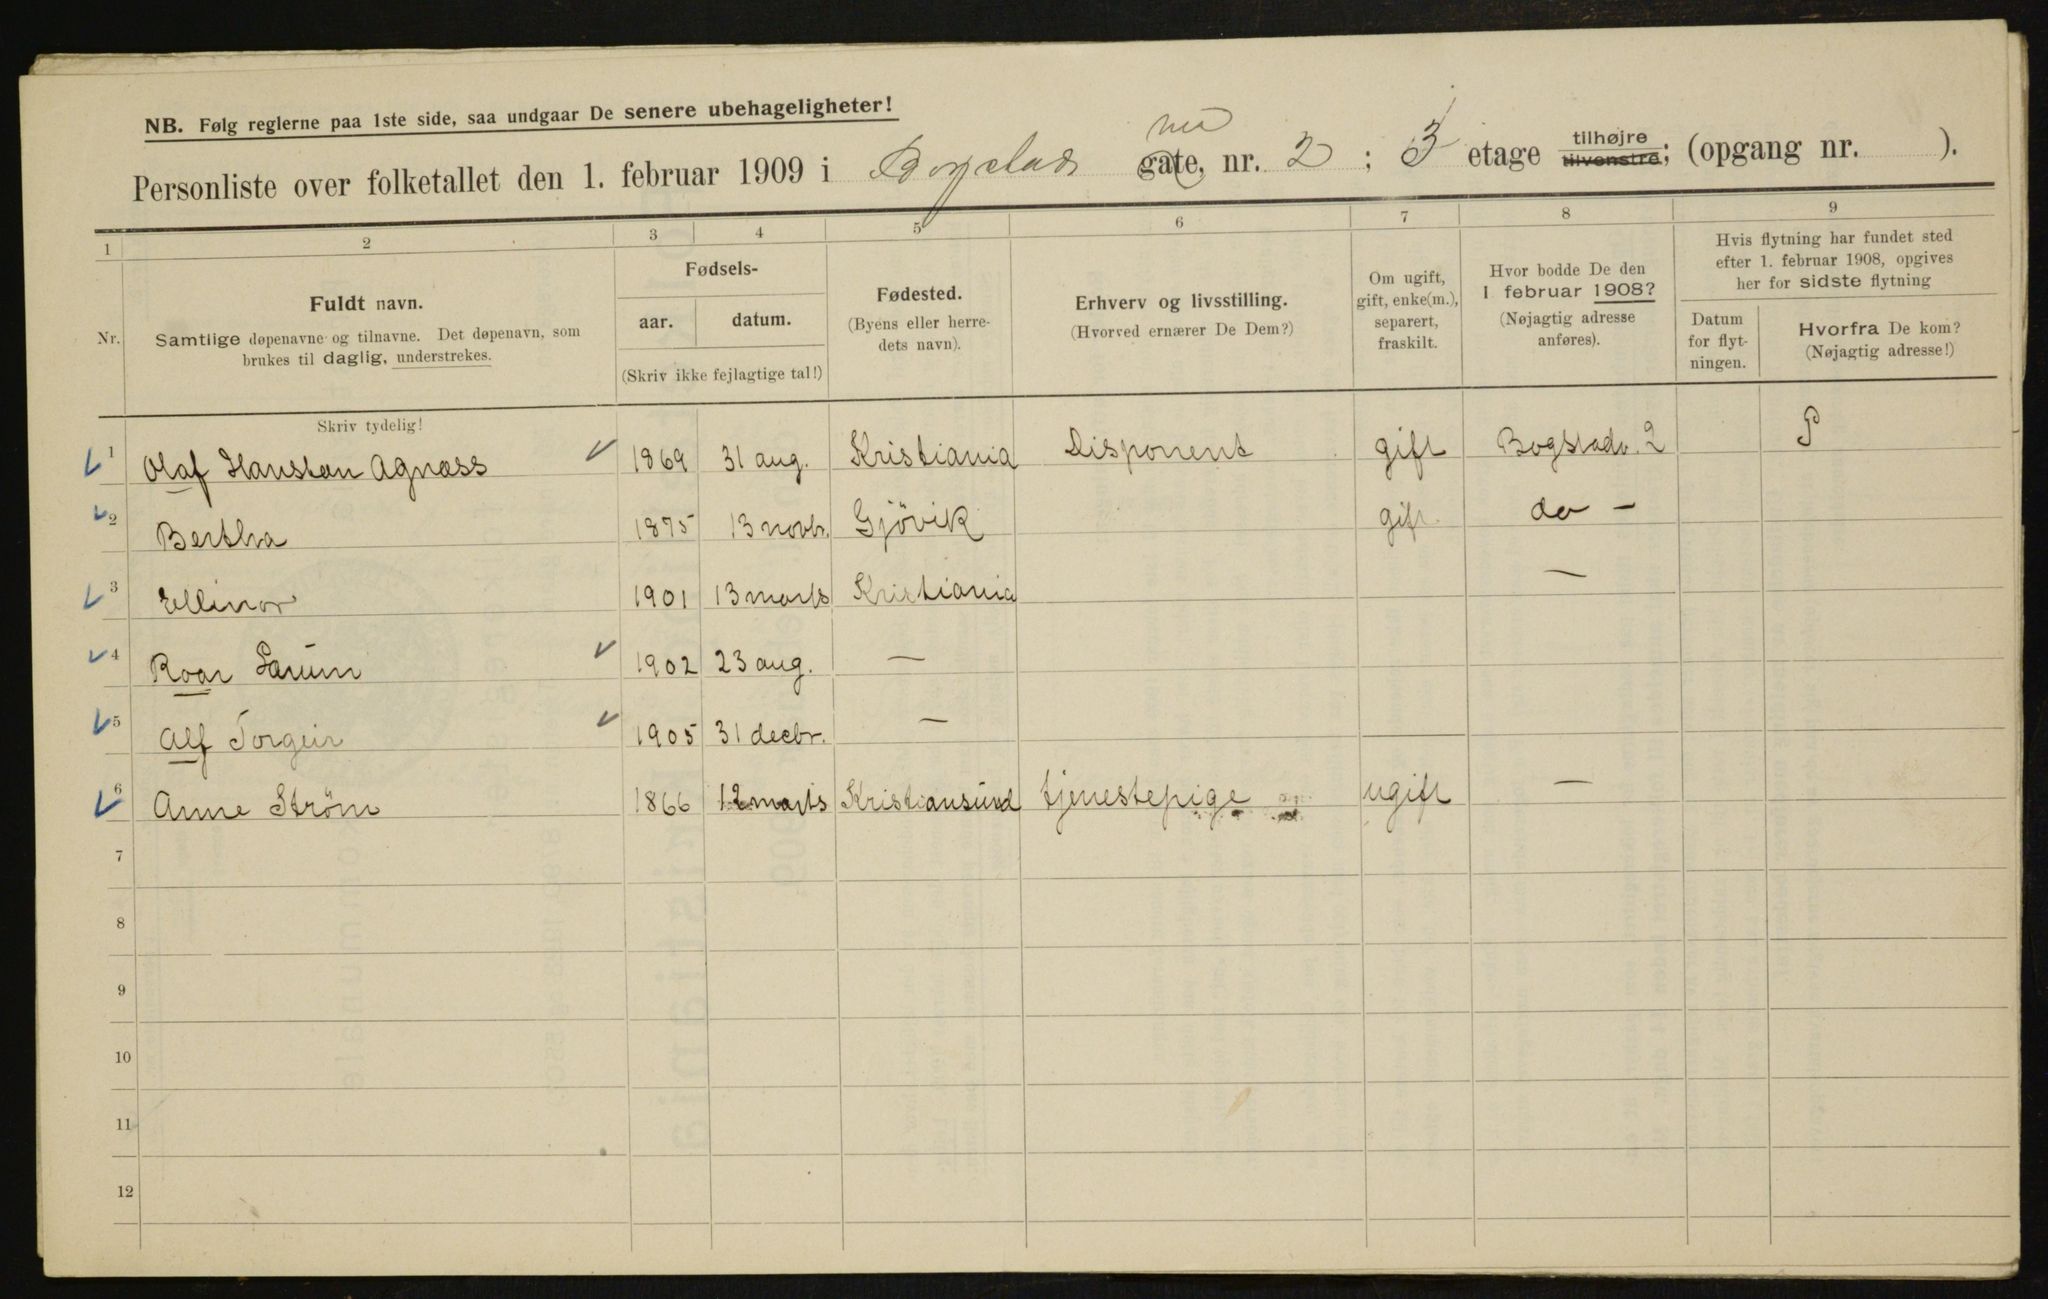 NB. Følg reglerne paa 1ste side, saa undgaar De senere ubehageligheter!
Personliste over folketallet den 1. februar 1909 i Bogstads gate, nr. 2 ; 3 etage tilhøjre tilvenstre; (opgang nr. ).
1 2 3 4 5 6 7 8 9
Nr.
Fuldt navn.
Samtlige døpenavne og tilnavne. Det døpenavn, som
brukes til daglig, understrekes.
Fødsels-
aar. datum.
(Skriv ikke fejlagtige tal!)
Fødested.
(Byens eller herre-
dets navn).
Erhverv og livsstilling.
(Hvorved ernærer De Dem?)
Om ugift,
gift, enke(m.),
separert,
fraskilt.
Hvor bodde De den
1 februar 1908?
(Nøjagtig adresse
anføres).
Hvis flytning har fundet sted
efter 1. februar 1908, opgives
her for sidste flytning
Datum
for flyt-
ningen.
Hvorfra De kom?
(Nøjagtig adresse!)
Skriv tydelig!
1 Olaf Hansten Agnæss 1869 31 aug. Kristiania Disponent gift Bogstadv. 2
2 Bertha 1875 13 novbr. Gjövik gift do —
3 Ellinor 1901 13 marts Kristiania —
4 Roar 1902 23 aug. —
5 Alf Torgeir 1905 31 decbr. —
6 Anne Ström 1866 12 marts Kristiansund tjenestepige ugift —
7
8
9
10
11
12